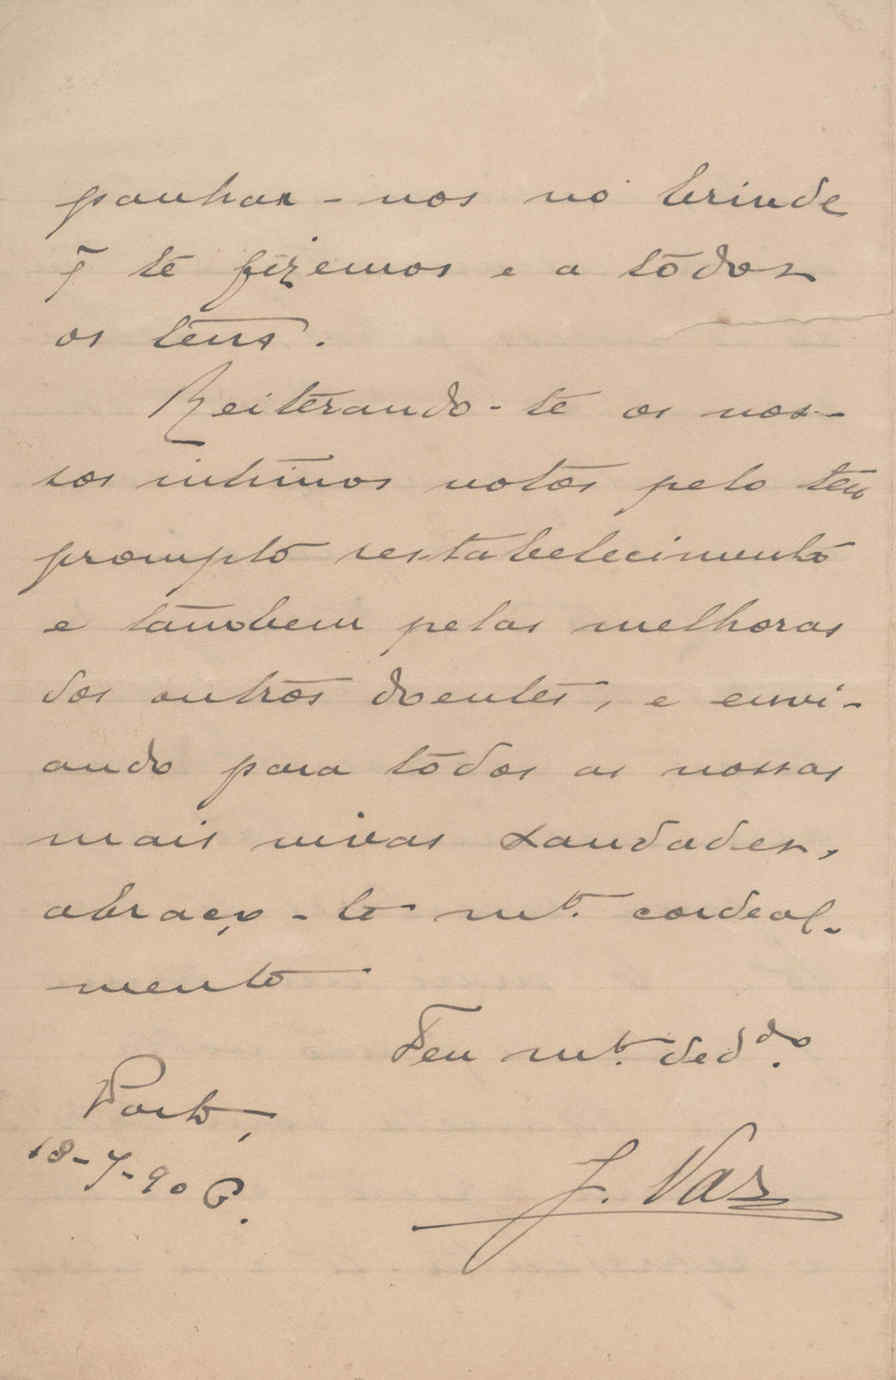 panhar-nos no brinde
q̃ te fizemos e a todos
os teus.
Reiterando-te os nos-
sos intimos votos pelo teu
prompto restabelecimento
e tambem pelas melhoras
dos outros doentes, e envi-
ando para todos as nossas
mais vivas saudades,
abraço-te mt.º cordeal-
mente
Teu mt.º dedᵈᵒ.
Porto,
18-7-906.
J. Vaz